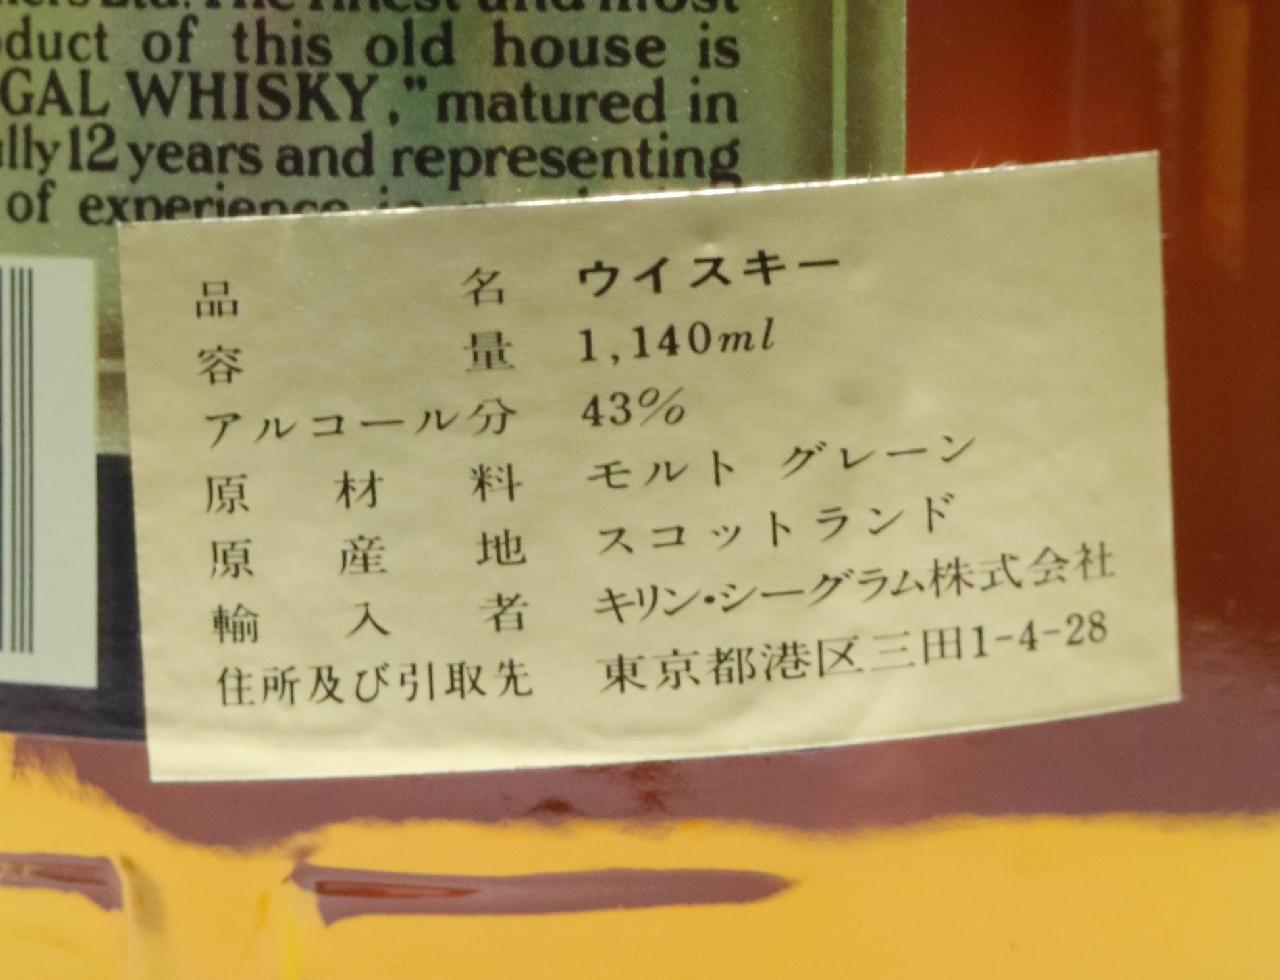 Ltd. The finest and most
of this old house is
WHISKY," matured in
12 years and representing
of experience in
品名 ウイスキー
容量 1,140ml
アルコール分 43%
原材料 モルト グレーン
原産地 スコットランド
輸入者 キリン・シーグラム株式会社
住所及び引取先 東京都港区三田1-4-28